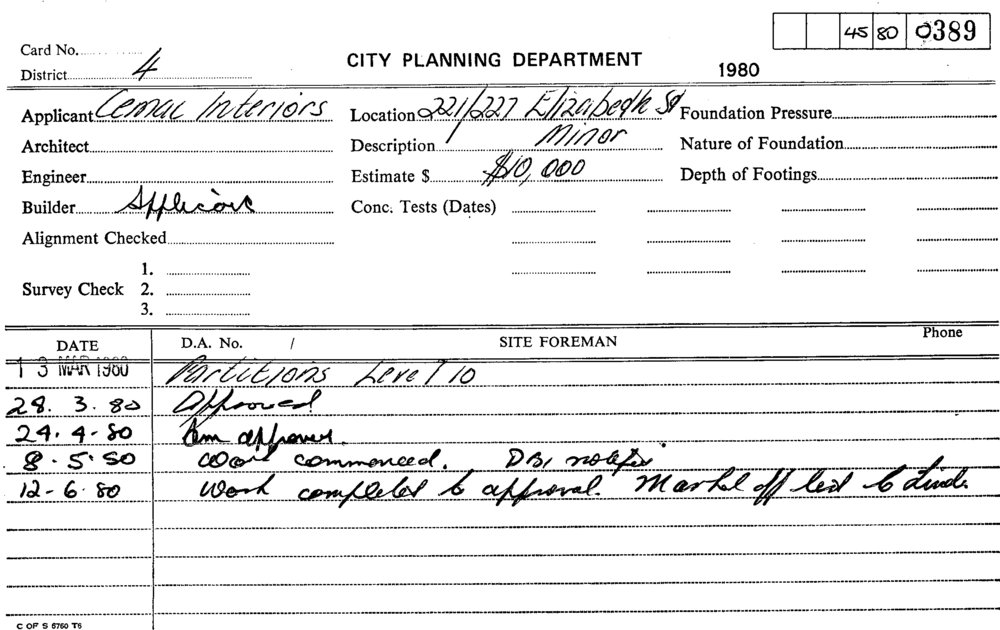 45 80 0389
Card No.
CITY PLANNING DEPARTMENT
1980
District 4
Applicant Cemac Interiors Location 221/227 Elizabeth St Foundation Pressure
Architect Description Minor Nature of Foundation
Engineer Estimate $ $10,000 Depth of Footings
Builder Applicant Conc. Tests (Dates)
Alignment Checked
1.
Survey Check 2.
3.
DATE D.A. No. / SITE FOREMAN Phone
13 MAR 1980 Partitions Level 10
28. 3. 80 Approved
24. 4. 80 approved.
8. 5. 80 Work commenced.
12-6. 80 Work completed to approval. Marked off
C OF S 6760 T6